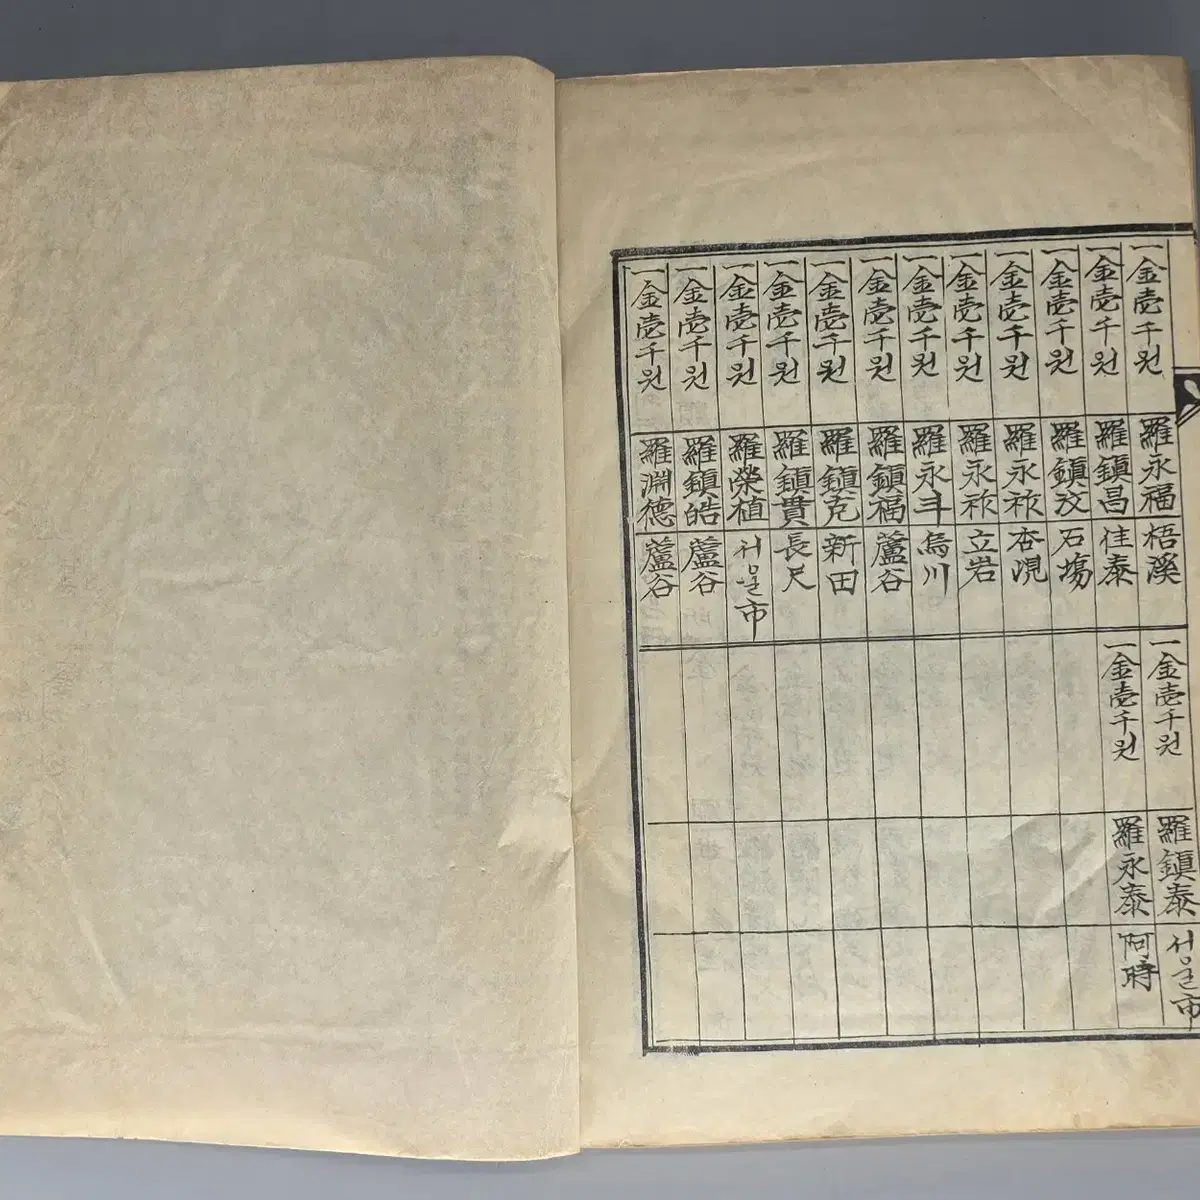 一金壱千원 羅永福 梧溪
一金壱千원 羅鎭昌 佳泰
一金壱千원 羅鎭汶 石塲
一金壱千원 羅永祚 杏峴
一金壱千원 羅永祚 立岩
一金壱千원 羅永斗 烏川
一金壱千원 羅鎭福 蘆谷
一金壱千원 羅鎭克 新田
一金壱千원 羅鎭貫 長尺
一金壱千원 羅榮植 서울市
一金壱千원 羅鎭皓 蘆谷
一金壱千원 羅淵德 蘆谷
一金壱千원 羅鎭泰 서울市
一金壱千원 羅永泰 阿時